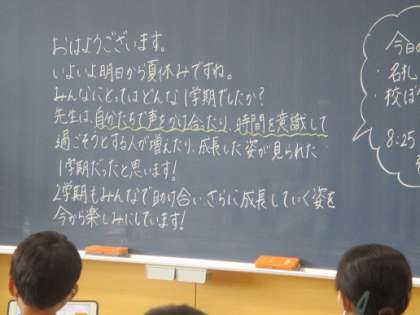 おはようございます。
いよいよ明日から夏休みですね。
みんなにとってはどんな1学期でしたか?
先生は、自分たちで声をかけ合ったり、時間を意識して
過ごそうとする人が増えたり、成長した姿が見られた
1学期だったと思います!
2学期もみんなで助け合い、さらに成長していく姿を
今から楽しみにしています!
今日の
・名札
・校ぼ
8:25